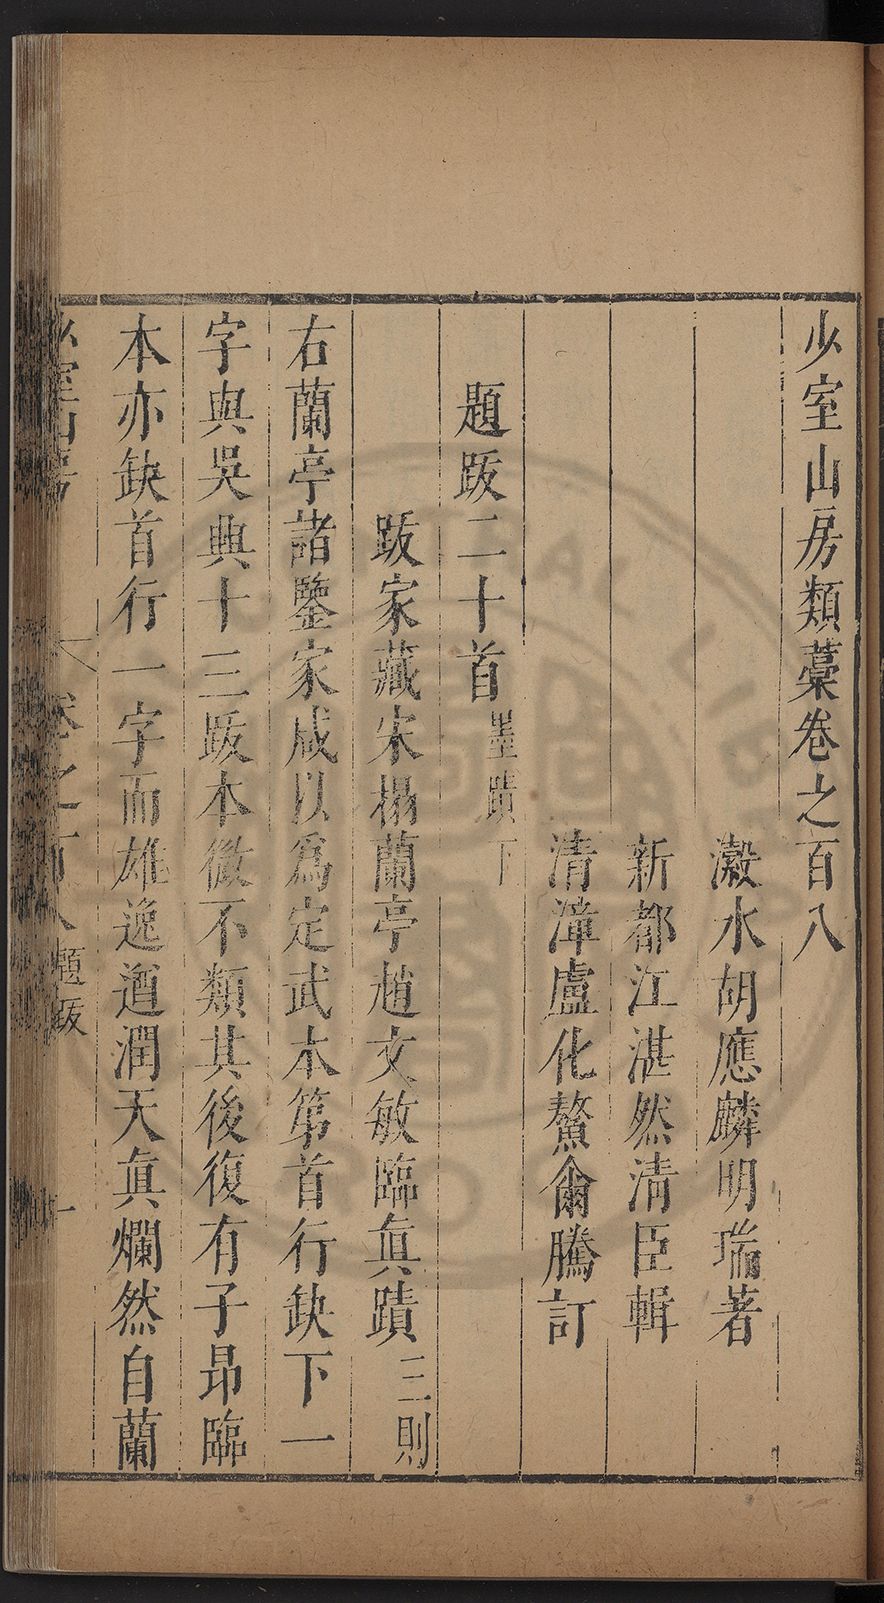 少室山房類藁卷之百八
瀫水胡應麟明瑞著
新都江湛然清臣輯
清漳盧化鰲爾騰訂
題跋二十首墨蹟下
跋家藏宋榻蘭亭趙文敏臨眞蹟三則
右蘭亭諸鑒家咸以爲定武本第首行缺下一
字與吳興十三跋本微不類其後復有子昻臨
本亦缺首行一字而雄逸遒潤天眞爛然自蘭
少室山房 卷之百八 題跋 一